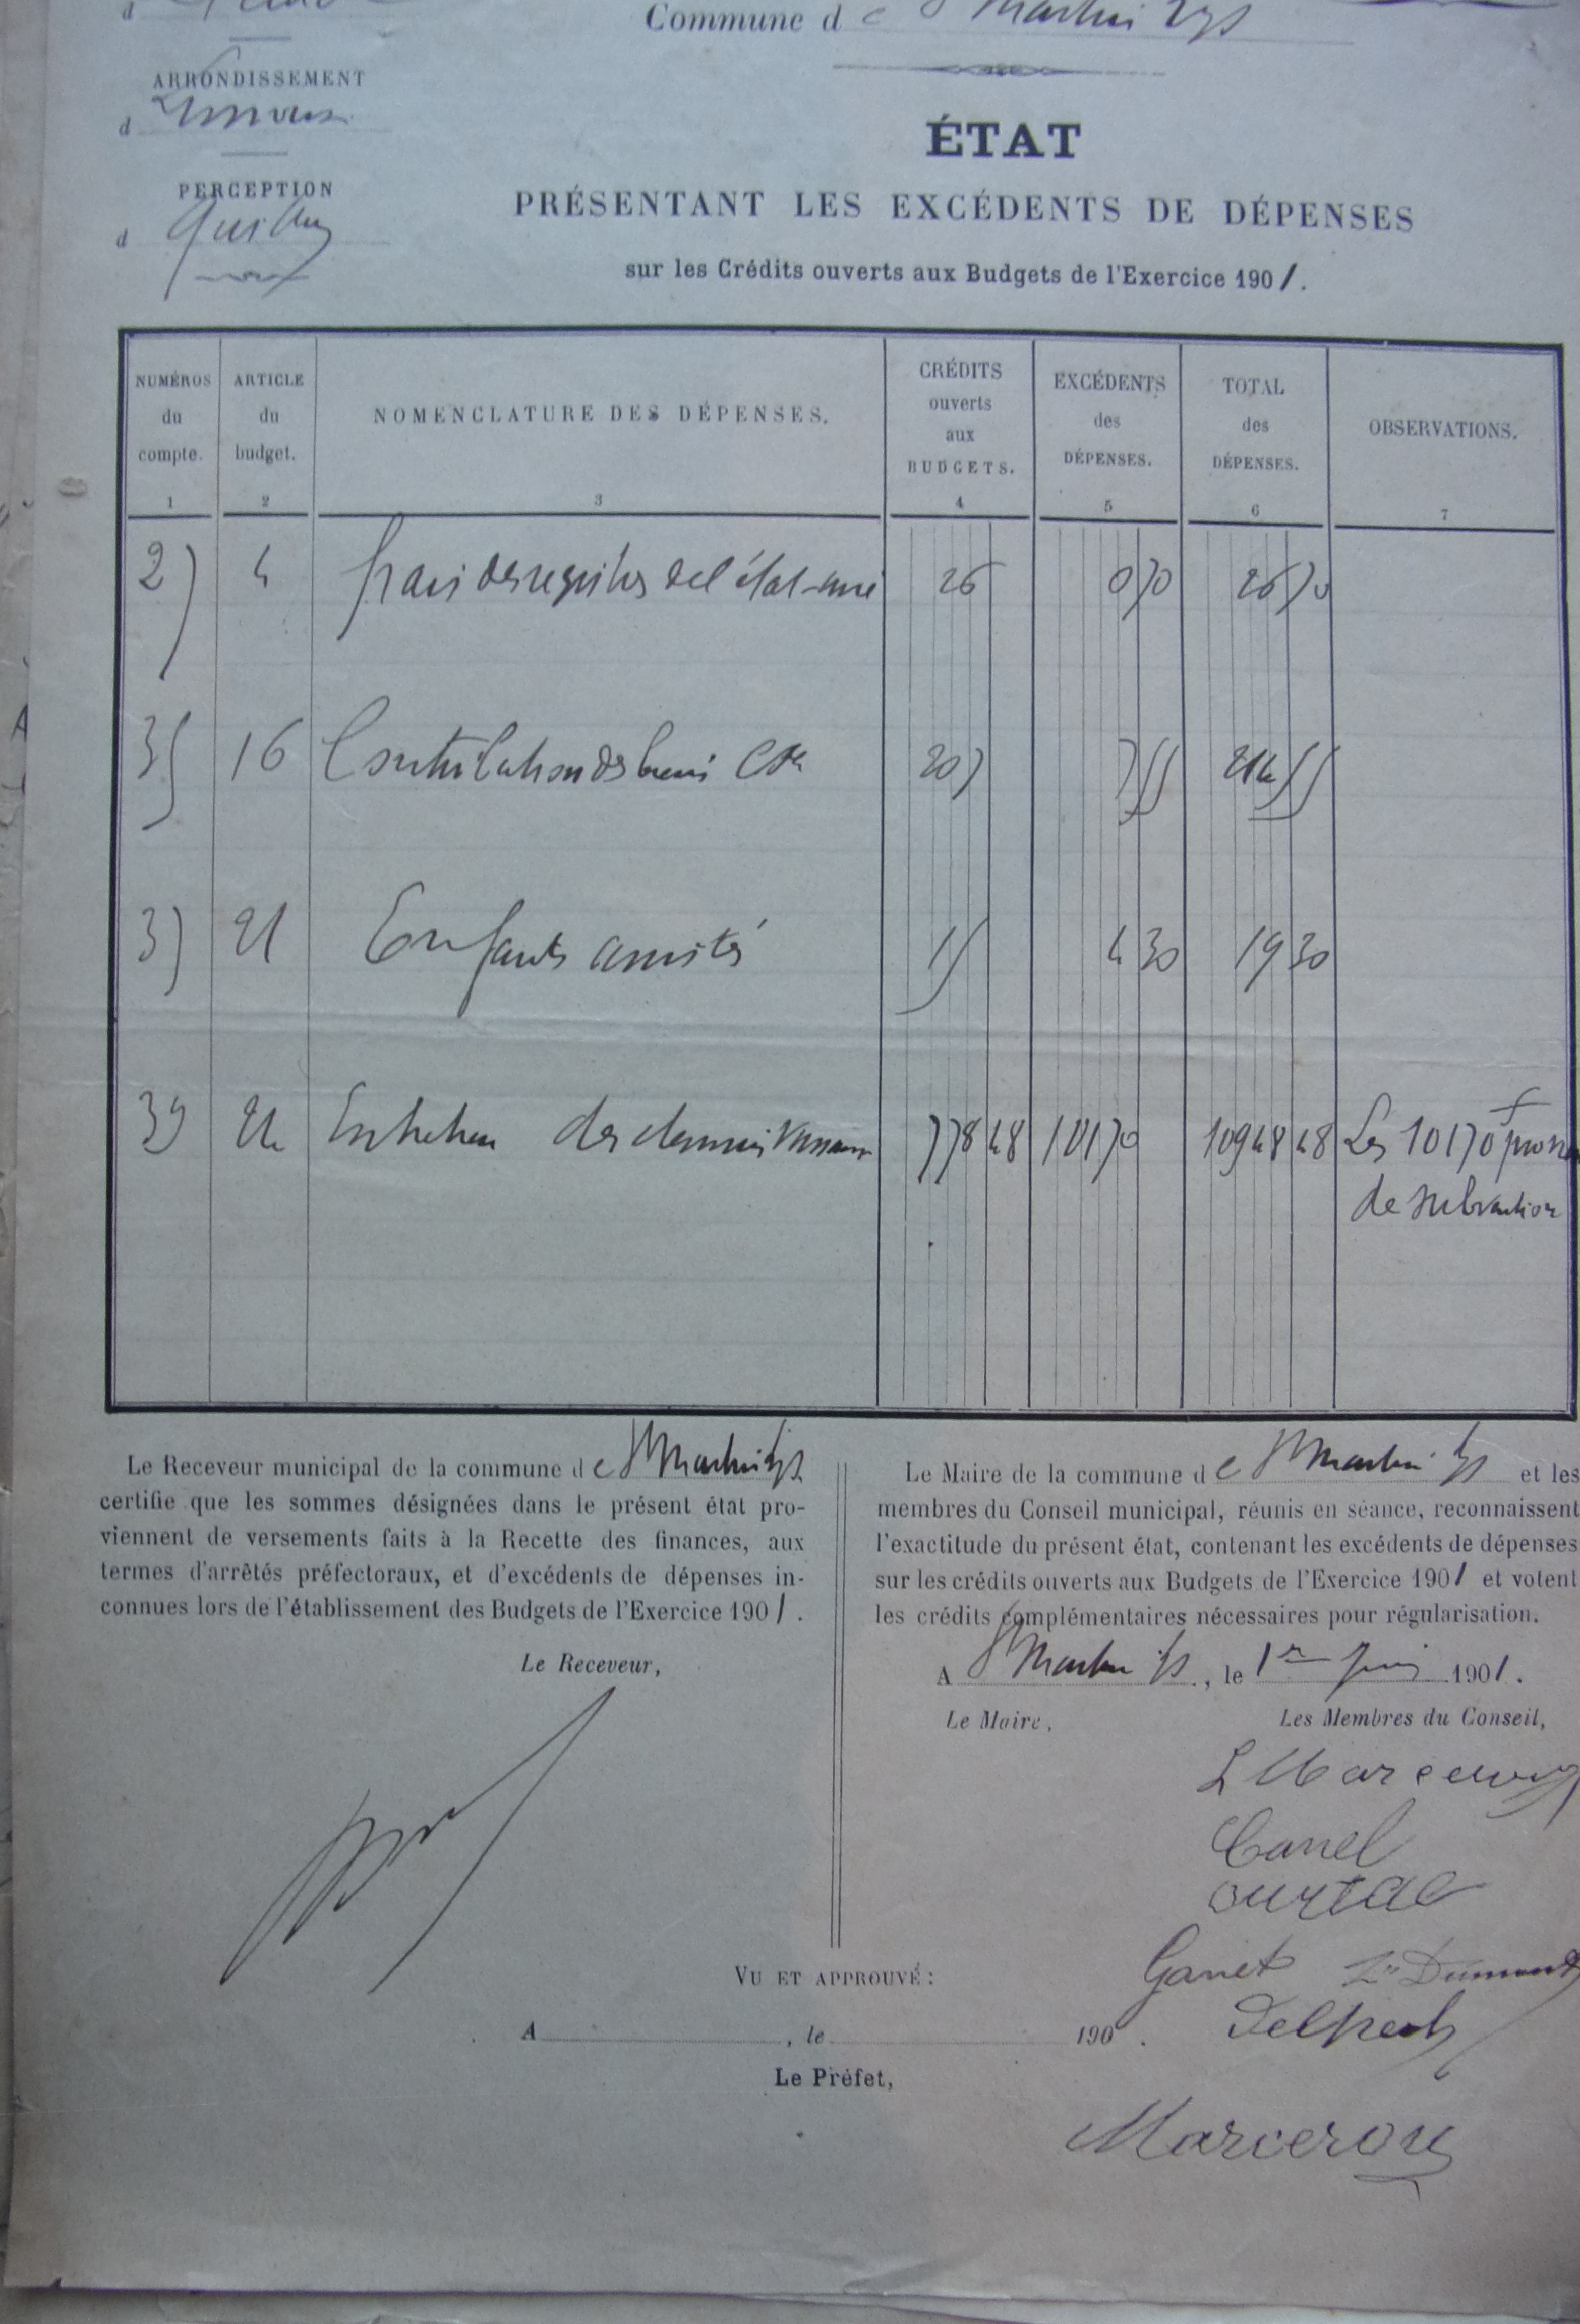 Commune de St Martin Lys
ARRONDISSEMENT
d Limoux
PERCEPTION
d Quillan
ÉTAT
PRÉSENTANT LES EXCÉDENTS DE DÉPENSES
sur les Crédits ouverts aux Budgets de l'Exercice 1901.
NUMÉROS du compte. 1
ARTICLE du budget. 2
NOMENCLATURE DES DÉPENSES. 3
CRÉDITS ouverts aux BUDGETS. 4
EXCÉDENTS des DÉPENSES. 5
TOTAL des DÉPENSES. 6
OBSERVATIONS. 7
27 4 frais des registres de l'état-civil 26 0 70 26 70
35 16 Contribution des biens Cx 207 7 55 214 55
37 21 Enfants assistés 15 4 30 19 30
39 22 Entretien des chemins vicinaux 778 48 10170 10948 48 Les 10170 f prov
de subvention
Le Receveur municipal de la commune de St Martin Lys
certifie que les sommes désignées dans le présent état pro-
viennent de versements faits à la Recette des finances, aux
termes d'arrêtés préfectoraux, et d'excédents de dépenses in-
connues lors de l'établissement des Budgets de l'Exercice 1901.
Le Receveur,
Le Maire de la commune de St Martin Lys et les
membres du Conseil municipal, réunis en séance, reconnaissent
l'exactitude du présent état, contenant les excédents de dépenses
sur les crédits ouverts aux Budgets de l'Exercice 1901 et votent
les crédits complémentaires nécessaires pour régularisation.
A St Martin Lys, le 1er Juin 1901.
Le Maire,
Les Membres du Conseil,
L Marcerou
Canel
ourtal
Garret Ls Dumont
Delpech
Marcerou
VU ET APPROUVÉ :
A , le 190 .
Le Préfet,